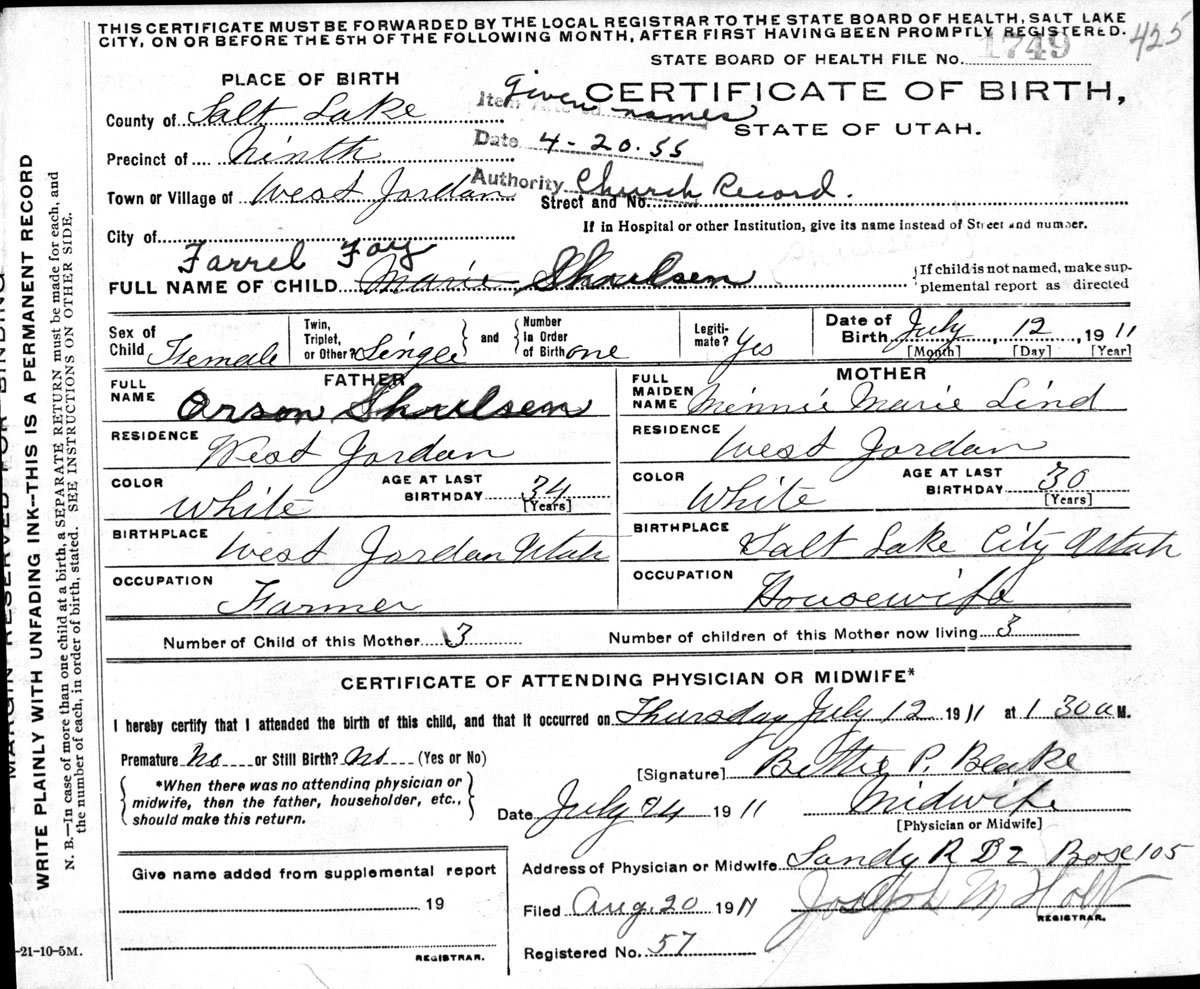 THIS CERTIFICATE MUST BE FORWARDED BY THE LOCAL REGISTRAR TO THE STATE BOARD OF HEALTH, SALT LAKE
CITY, ON OR BEFORE THE 5TH OF THE FOLLOWING MONTH, AFTER FIRST HAVING BEEN PROMPTLY REGISTERED.
425
STATE BOARD OF HEALTH FILE NO. 1749
PLACE OF BIRTH
CERTIFICATE OF BIRTH,
STATE OF UTAH.
Item Given names
Date 4-20-55
Authority Church Record.
County of Salt Lake
Precinct of Ninth
Town or Village of West Jordan
Street and No.
City of
If in Hospital or other Institution, give its name instead of Street and number.
Farrel Fay
FULL NAME OF CHILD Marie
{If child is not named, make sup-
plemental report as directed
Sex of Child Female
Twin, Triplet, or Other? Single and Number In Order of Birth one
Legiti-mate? Yes
Date of Birth July 12, 1911
[Month] [Day] [Year]
FATHER
FULL NAME Orson
RESIDENCE West Jordan
COLOR White
AGE AT LAST BIRTHDAY 34
[Years]
BIRTHPLACE West Jordan Utah
OCCUPATION Farmer
MOTHER
FULL MAIDEN NAME Minnie Marie Lind
RESIDENCE West Jordan
COLOR White
AGE AT LAST BIRTHDAY 30
[Years]
BIRTHPLACE Salt Lake City Utah
OCCUPATION Housewife
Number of Child of this Mother 3
Number of children of this Mother now living 3
CERTIFICATE OF ATTENDING PHYSICIAN OR MIDWIFE*
I hereby certify that I attended the birth of this child, and that it occurred on Thursday July 12 1911 at 1 30 a M.
Premature No or Still Birth? No (Yes or No)
{*When there was no attending physician or
midwife, then the father, householder, etc.,
should make this return.}
[Signature] P. Blake
Date July 24 1911
Midwife
[Physician or Midwife]
Address of Physician or Midwife Sandy R D 2 Box 105
Filed Aug. 20 1911
Joseph M Holt
REGISTRAR.
Registered No. 57
Give name added from supplemental report
19
REGISTRAR.
-21-10-5M.
MARGIN RESERVED FOR BINDING
WRITE PLAINLY WITH UNFADING INK--THIS IS A PERMANENT RECORD
N. B.—In case of more than one child at a birth, a SEPARATE RETURN must be made for each, and
the number of each, in order of birth, stated. SEE INSTRUCTIONS ON OTHER SIDE.